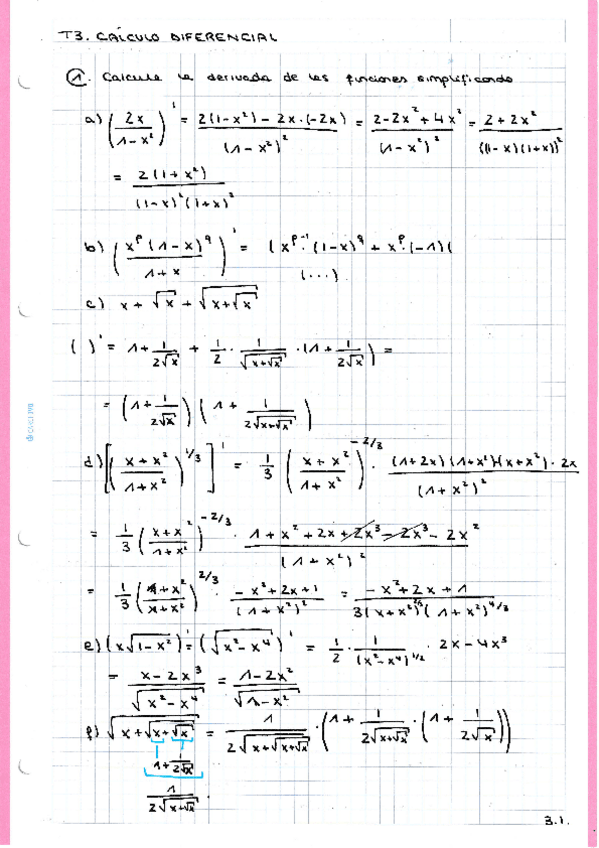 T3. CÁLCULO DIFERENCIAL
1. Calcula la derivada de las funciones simplificando
a) (2x / 1-x²)' = 2(1-x²) - 2x·(-2x) / (1-x²)² = 2-2x²+4x² / (1-x²)² = 2+2x² / ((1-x)(1+x))²
= 2(1+x²) / (1-x)²(1+x)²
b) (x^p (1-x)^q / 1+x)' = (x^p-1·(1-x)^q + x^p·(-1)(
(...)
c) x + √x + √(x+√x)
( )' = 1 + 1/2√x + 1/2 · 1/√(x+√x) · (1 + 1/2√x) =
= (1 + 1/2√x) (1 + 1/2√(x+√x))
d) [(x+x² / 1+x²)^1/3]' = 1/3 (x+x² / 1+x²)^-2/3 · (1+2x)(1+x²)-(x+x²)·2x / (1+x²)²
= 1/3 (x+x² / 1+x²)^-2/3 · 1+x²+2x+2x³-2x³-2x² / (1+x²)²
= 1/3 (1+x² / x+x²)^2/3 · -x²+2x+1 / (1+x²)² = -x²+2x+1 / 3(x+x²)^2/3 (1+x²)^4/3
e) (x√(1-x²))' = (√(x²-x⁴))' = 1/2 · 1/(x²-x⁴)^1/2 · 2x-4x³
= x-2x³ / √(x²-x⁴) = 1-2x² / √(1-x²)
f) √(x+√(x+√x)) = 1 / 2√(x+√(x+√x)) · (1 + 1/2√(x+√x) · (1 + 1/2√x))
1 + 1/2√x
1 / 2√(x+√x) ·
3.1.